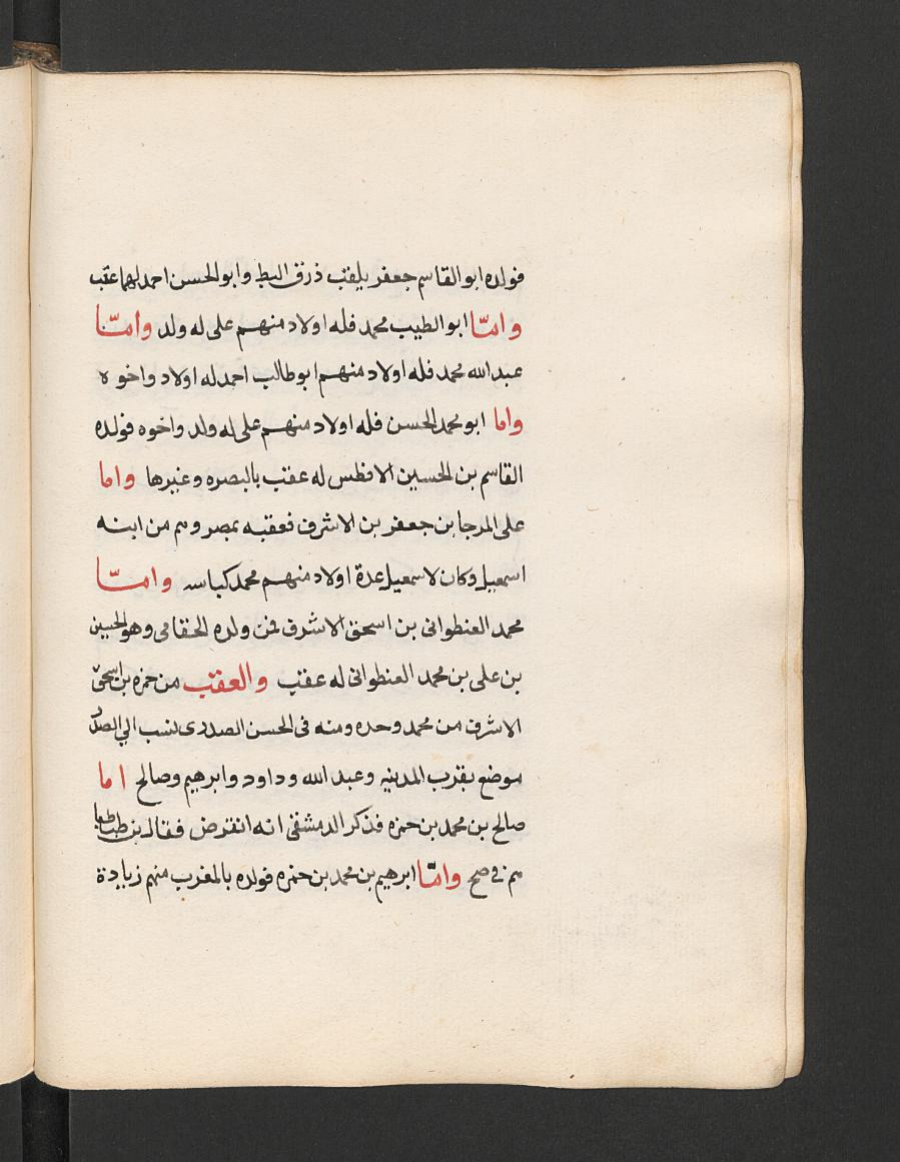 فولده ابو القاسم جعفر يلقب ذرق البط وابو الحسن احمد لهما عقب
وامّا ابو الطيب محمد فله اولاد منهم على له ولد وامّا
عبد الله محمد فله اولاد منهم ابو طالب احمد له اولاد واخوه
واما ابو محمد الحسن فله اولاد منهم على له ولد واخوه فولده
القاسم بن الحسين الافطس له عقب بالبصره وغيرها واما
على المرجا بن جعفر بن الاشرف فعقبه بمصر وهم من ابنه
اسمعيل وكان لاسمعيل عدة اولاد منهم محمد كباسه وامّا
محمد العنطوانى بن اسحق الاشرف فمن ولده الحقامى وهو الحسين
بن على بن محمد العنطوانى له عقب والعقب من حمزه بن اسحق
الاشرف من محمد وحده ومنه فى الحسن الصدرى نسب الي الصدر
موضع بقرب المدينه وعبد الله وداود وابرهيم وصالح اما
صالح بن محمد بن حمزه فذكر الدمشقى انه انقرض فقال بن طباطبا
هم فى صح وامّا ابرهيم بن محمد بن حمزه فولده بالمغرب منهم زيادة